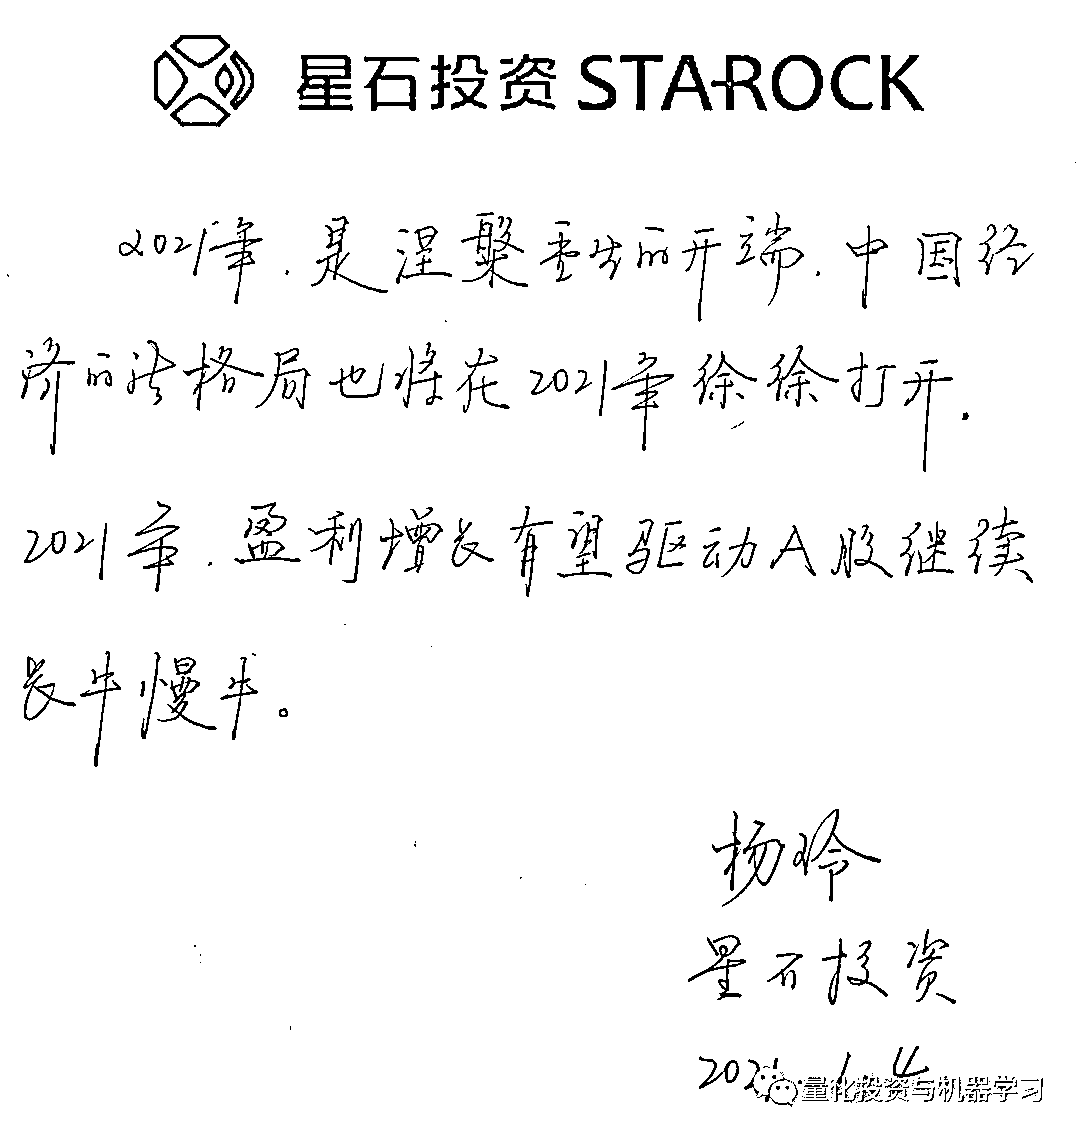 星石投资 STAROCK
2021年,是涅槃重生的开端,中国经
济的格局也将在2021年徐徐打开.
2021年,盈利增长有望驱动A股继续
长牛慢牛。
杨玲
星石投资
2021.1.4
量化投资与机器学习